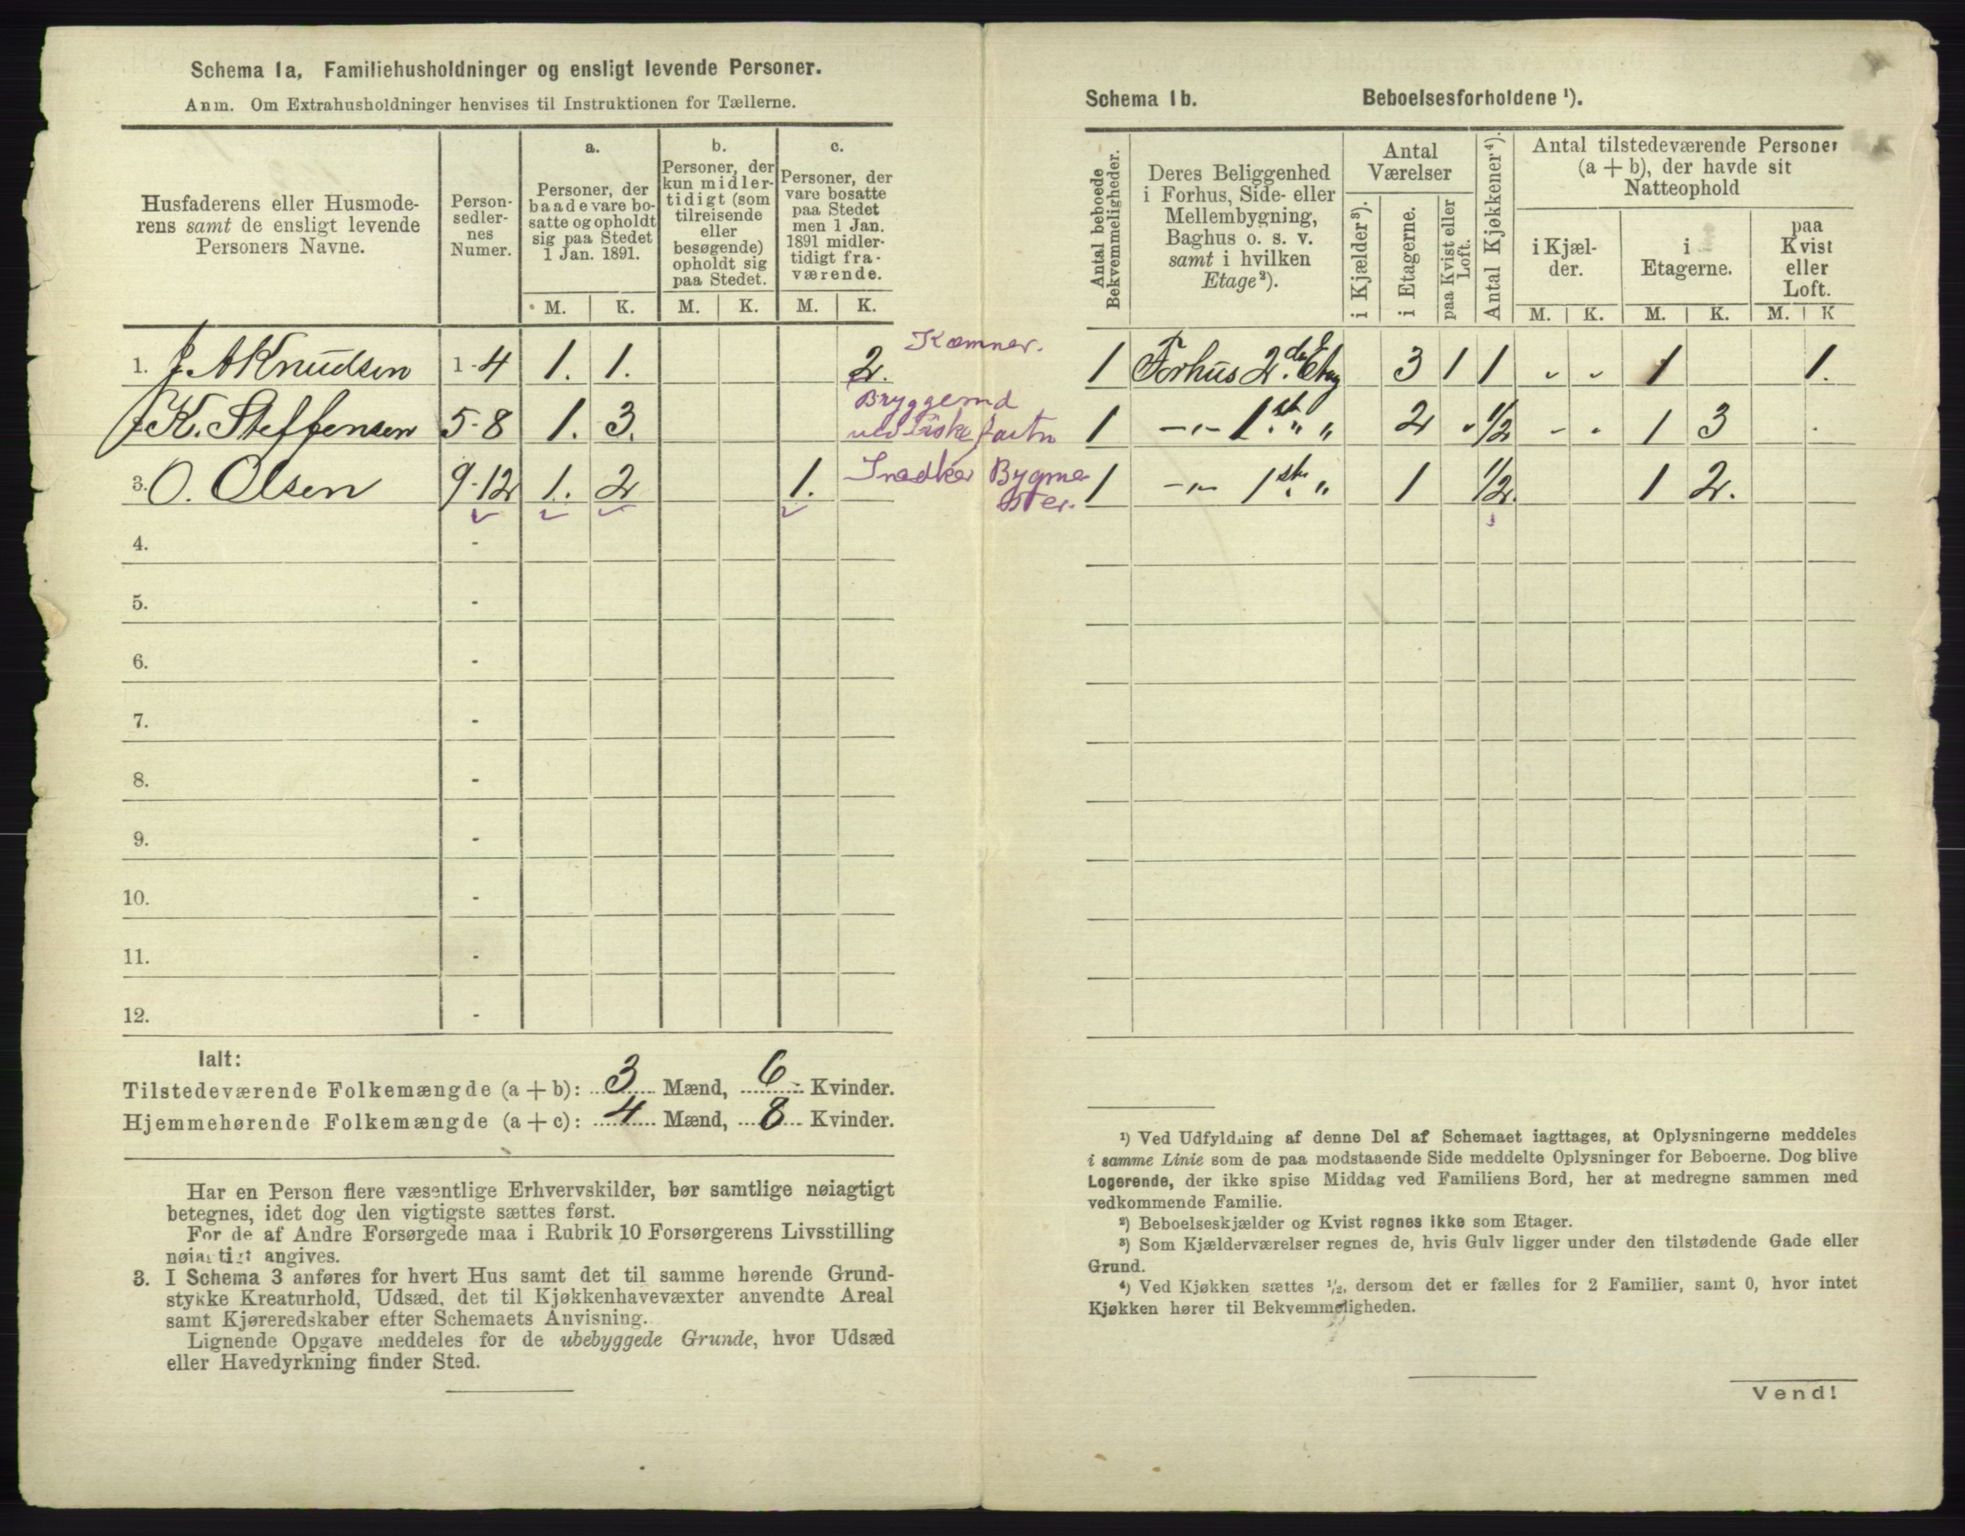 Schema 1a, Familiehusholdninger og ensligt levende Personer.
Anm. Om Extrahusholdninger henvises til Instruktionen for Tællerne.
Husfaderens eller Husmode-
rens samt de ensligt levende
Personers Navne.
Person-
sedler-
nes
Numer.
a.
Personer, der
baade vare bo-
satte og opholdt
sig paa Stedet
1 Jan. 1891.
M. K.
b.
Personer, der
kun midler-
tidigt (som
tilreisende
eller
besøgende)
opholdt sig
paa Stedet.
M. K.
c.
Personer, der
vare bosatte
paa Stedet
men 1 Jan.
1891 midler-
tidigt fra-
værende.
M. K.
1. J. A Knudsen 1-4 1. 1. 2. Kæmner.
J K. Steffensen 5-8 1. 3. Bryggemd
ved Fiske
3. O. Olsen 9-12 1. 2 1. Snedker Bygme
ster.
4. -
5. -
6. -
7. -
8. -
9. -
10. -
11. -
12. -
Ialt:
Tilstedeværende Folkemængde (a + b): 3 Mænd, 6 Kvinder.
Hjemmehørende Folkemængde (a + c): 4 Mænd, 8 Kvinder.
Har en Person flere væsentlige Erhvervskilder, bør samtlige nøiagtigt
betegnes, idet dog den vigtigste sættes først.
For de af Andre Forsørgede maa i Rubrik 10 Forsørgerens Livsstilling
nøiagtigt angives.
3. I Schema 3 anføres for hvert Hus samt det til samme hørende Grund-
stykke Kreaturhold, Udsæd, det til Kjøkkenhavevæxter anvendte Areal
samt Kjøreredskaber efter Schemaets Anvisning.
Lignende Opgave meddeles for de ubebyggede Grunde, hvor Udsæd
eller Havedyrkning finder Sted.
Schema 1b. Beboelsesforholdene ¹).
Antal beboede
Bekvemmeligheder.
Deres Beliggenhed
i Forhus, Side- eller
Mellembygning,
Baghus o. s. v.
samt i hvilken
Etage²).
Antal
Værelser
i Kjælder³).
i Etagerne.
paa Kvist eller
Loft.
Antal Kjøkkener⁴).
Antal tilstedeværende Personer
(a + b), der havde sit
Natteophold
i Kjæl-
der.
i
Etagerne.
paa
Kvist
eller
Loft.
M. K. M. K. M. K
1 Forhus 2de Etg 3 1 1 1 1.
1 -"- 1ste " " 2 1/2 1 3
1 -"- 1ste " 1 1/2 1 2.
¹) Ved Udfyldning af denne Del af Schemaet iagttages, at Oplysningerne meddeles
i samme Linie som de paa modstaaende Side meddelte Oplysninger for Beboerne. Dog blive
Logerende, der ikke spise Middag ved Familiens Bord, her at medregne sammen med
vedkommende Familie.
²) Beboelseskjælder og Kvist regnes ikke som Etager.
³) Som Kjælderværelser regnes de, hvis Gulv ligger under den tilstødende Gade eller
Grund.
⁴) Ved Kjøkken sættes ¹/₂, dersom det er fælles for 2 Familier, samt 0, hvor intet
Kjøkken hører til Bekvemmeligheden.
Vend!